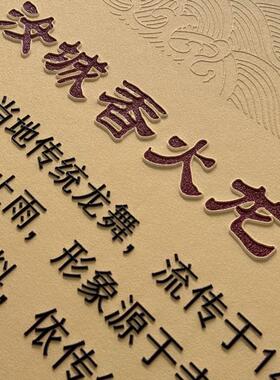 汝城香火龙
当地传统龙舞，流传于1
雨，形象源于
料，依传